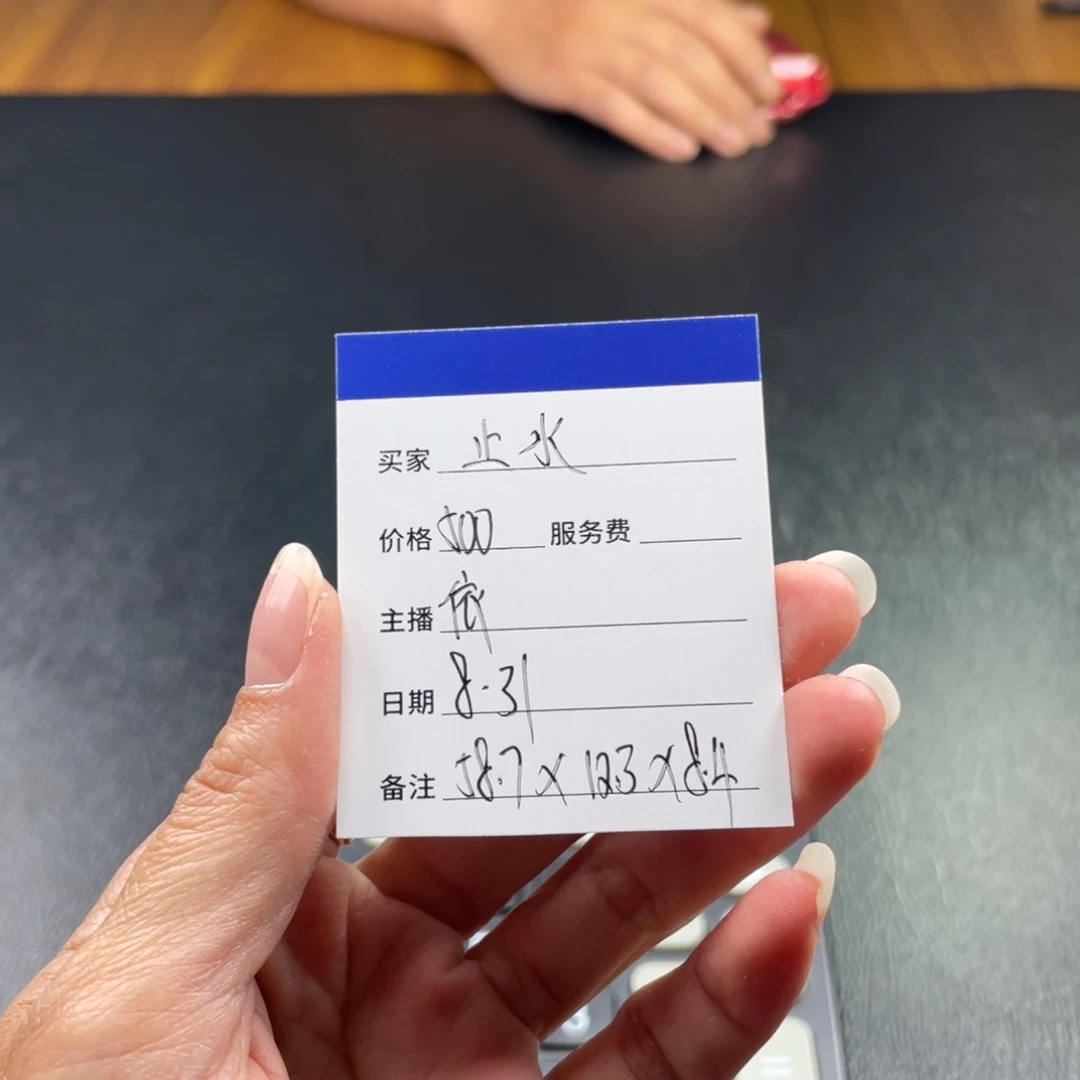 买家 止水
价格 500 服务费
主播 依
日期 8.31
备注 58.7 x 12.3 x 8.4